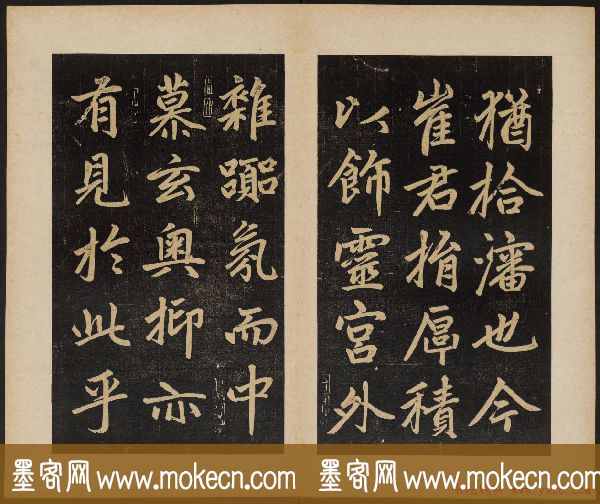 猶拾瀋也今
崔君捐厚積
以飾靈宮外
雜
氛而中
慕玄奧抑亦
有見於此乎
墨客网 www.mokecn.com
墨客网 www.mokecn.com